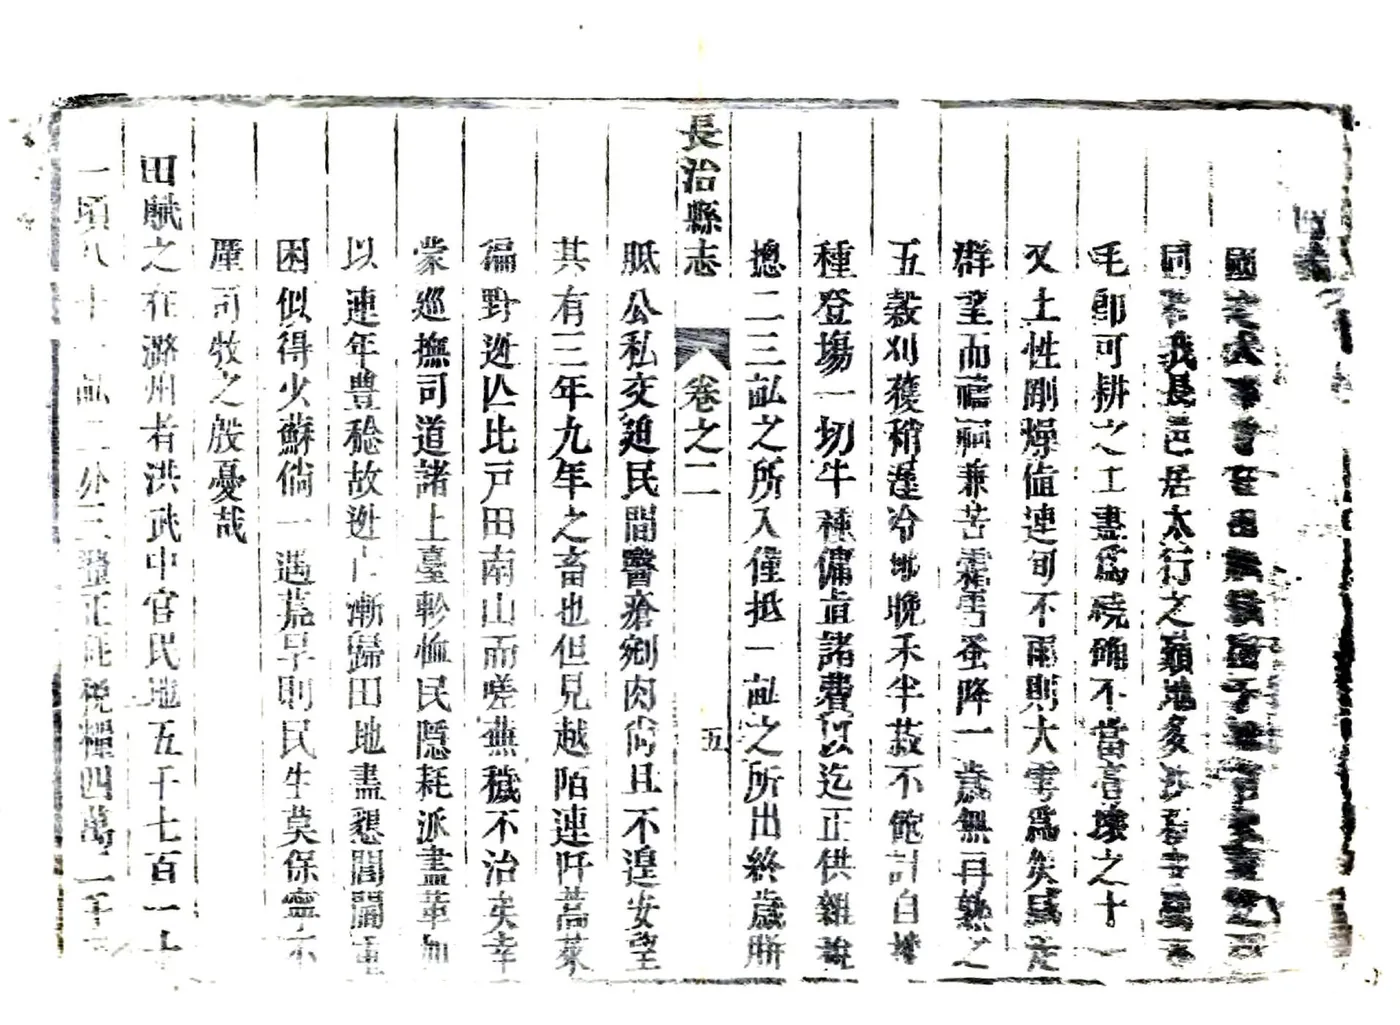 國
我長邑居太行之巔地多沙
毛郎可耕之工盡爲磽确不當高壤之十一
又土性剛燥值連旬不雨則大雩爲矣
群望而禱祠兼苦霜雪蚤降一歲無再熟之
五穀刈穫稍遲冷地晚禾半菽不飽計自
種登塲一切牛種傭直諸費以迄正供雜
摠二三畆之所入僅抵一畆之所出終歲胼
長治縣志 卷之二 五
胝公私交廹民間醫瘡剜肉尙且不遑安望
其有三年九年之畜也但見越陌連阡蒿萊
徧野逃亾比戸田南山而嗟蕪穢不治矣幸
蒙巡撫司道諸上臺軫恤民隱耗派盡革加
以連年豊稔故逃亡漸歸田地盡懇閭閻重
困似得火蘇倘一遇荒旱則民生莫保寧不
厪司牧之殷憂哉
田賦之在潞州者洪武中官民地五千七百一十
一頃八十一畆二分三釐正耗稅糧四萬二千